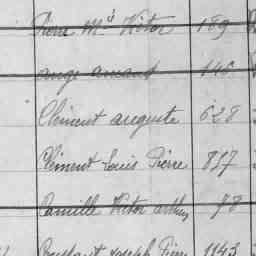 Pierre M^d Victor 189
ange amand 146
Clément auguste 628
Clément Louis Pierre 857
Camille Victor arthur 78
Constant Joseph Pierre 1143